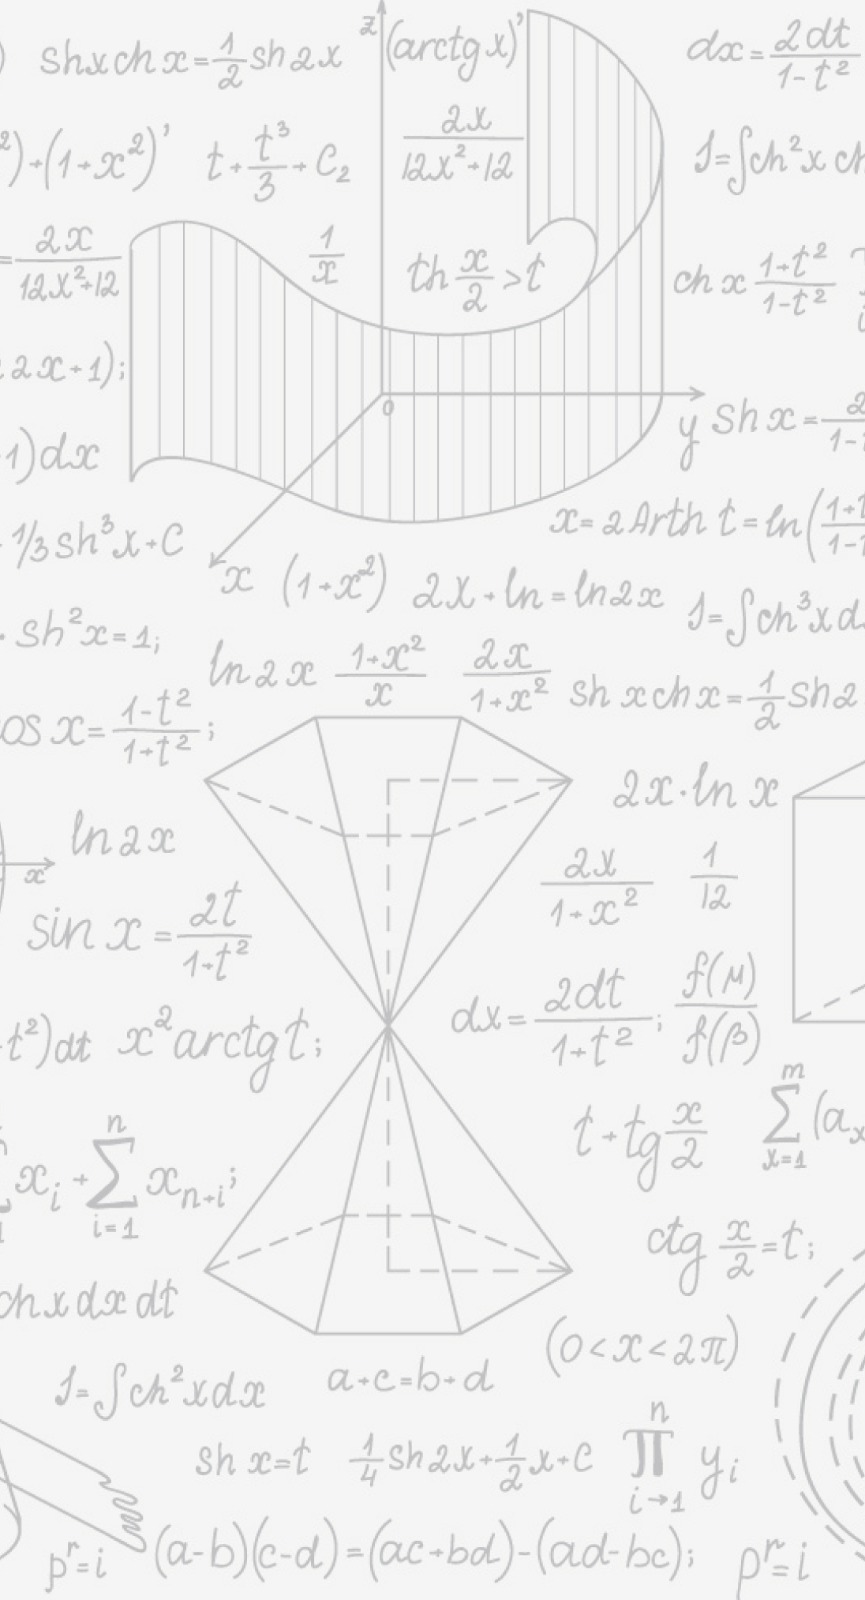 sh x ch x = 1/2 sh 2x
z
(arctg x)'
dx = 2dt/1-t²
²) + (1+x²)'
t + t³/3 + C₂
2x/12x²+12
J = ∫ch²x ch
= 2x/12x²+12
1/x
th x/2 > t
ch x 1+t²/1-t²
2x+1);
0
y
sh x = 2
1)dx
1/3 sh³x + C
x = 2 Arth t = ln(1+t
x
(1+x²)
2x + ln = ln 2x
J = ∫ch³x d
· sh²x = 1;
ln 2x
1+x²/x
2x/1+x²
sh x ch x = 1/2 sh 2
os x = 1-t²/1+t²;
2x · ln x
ln 2x
x
2x/1+x²
1/12
sin x = 2t/1+t²
dx = 2dt/1+t²;
f(μ)/f(β)
t²)dt
x² arctg t;
t + tg x/2
m
∑ (aₓ
x=1
n
xᵢ + ∑ xₙ₊ᵢ;
i=1
ctg x/2 = t;
ch x dx dt
(0 < x < 2π)
J = ∫ch²x dx
a + c = b + d
sh x = t
1/4 sh 2x + 1/2 x + C
n
∏ yᵢ
i→1
pʳ = i
(a-b)(c-d) = (ac+bd) - (ad-bc);
pʳ = i